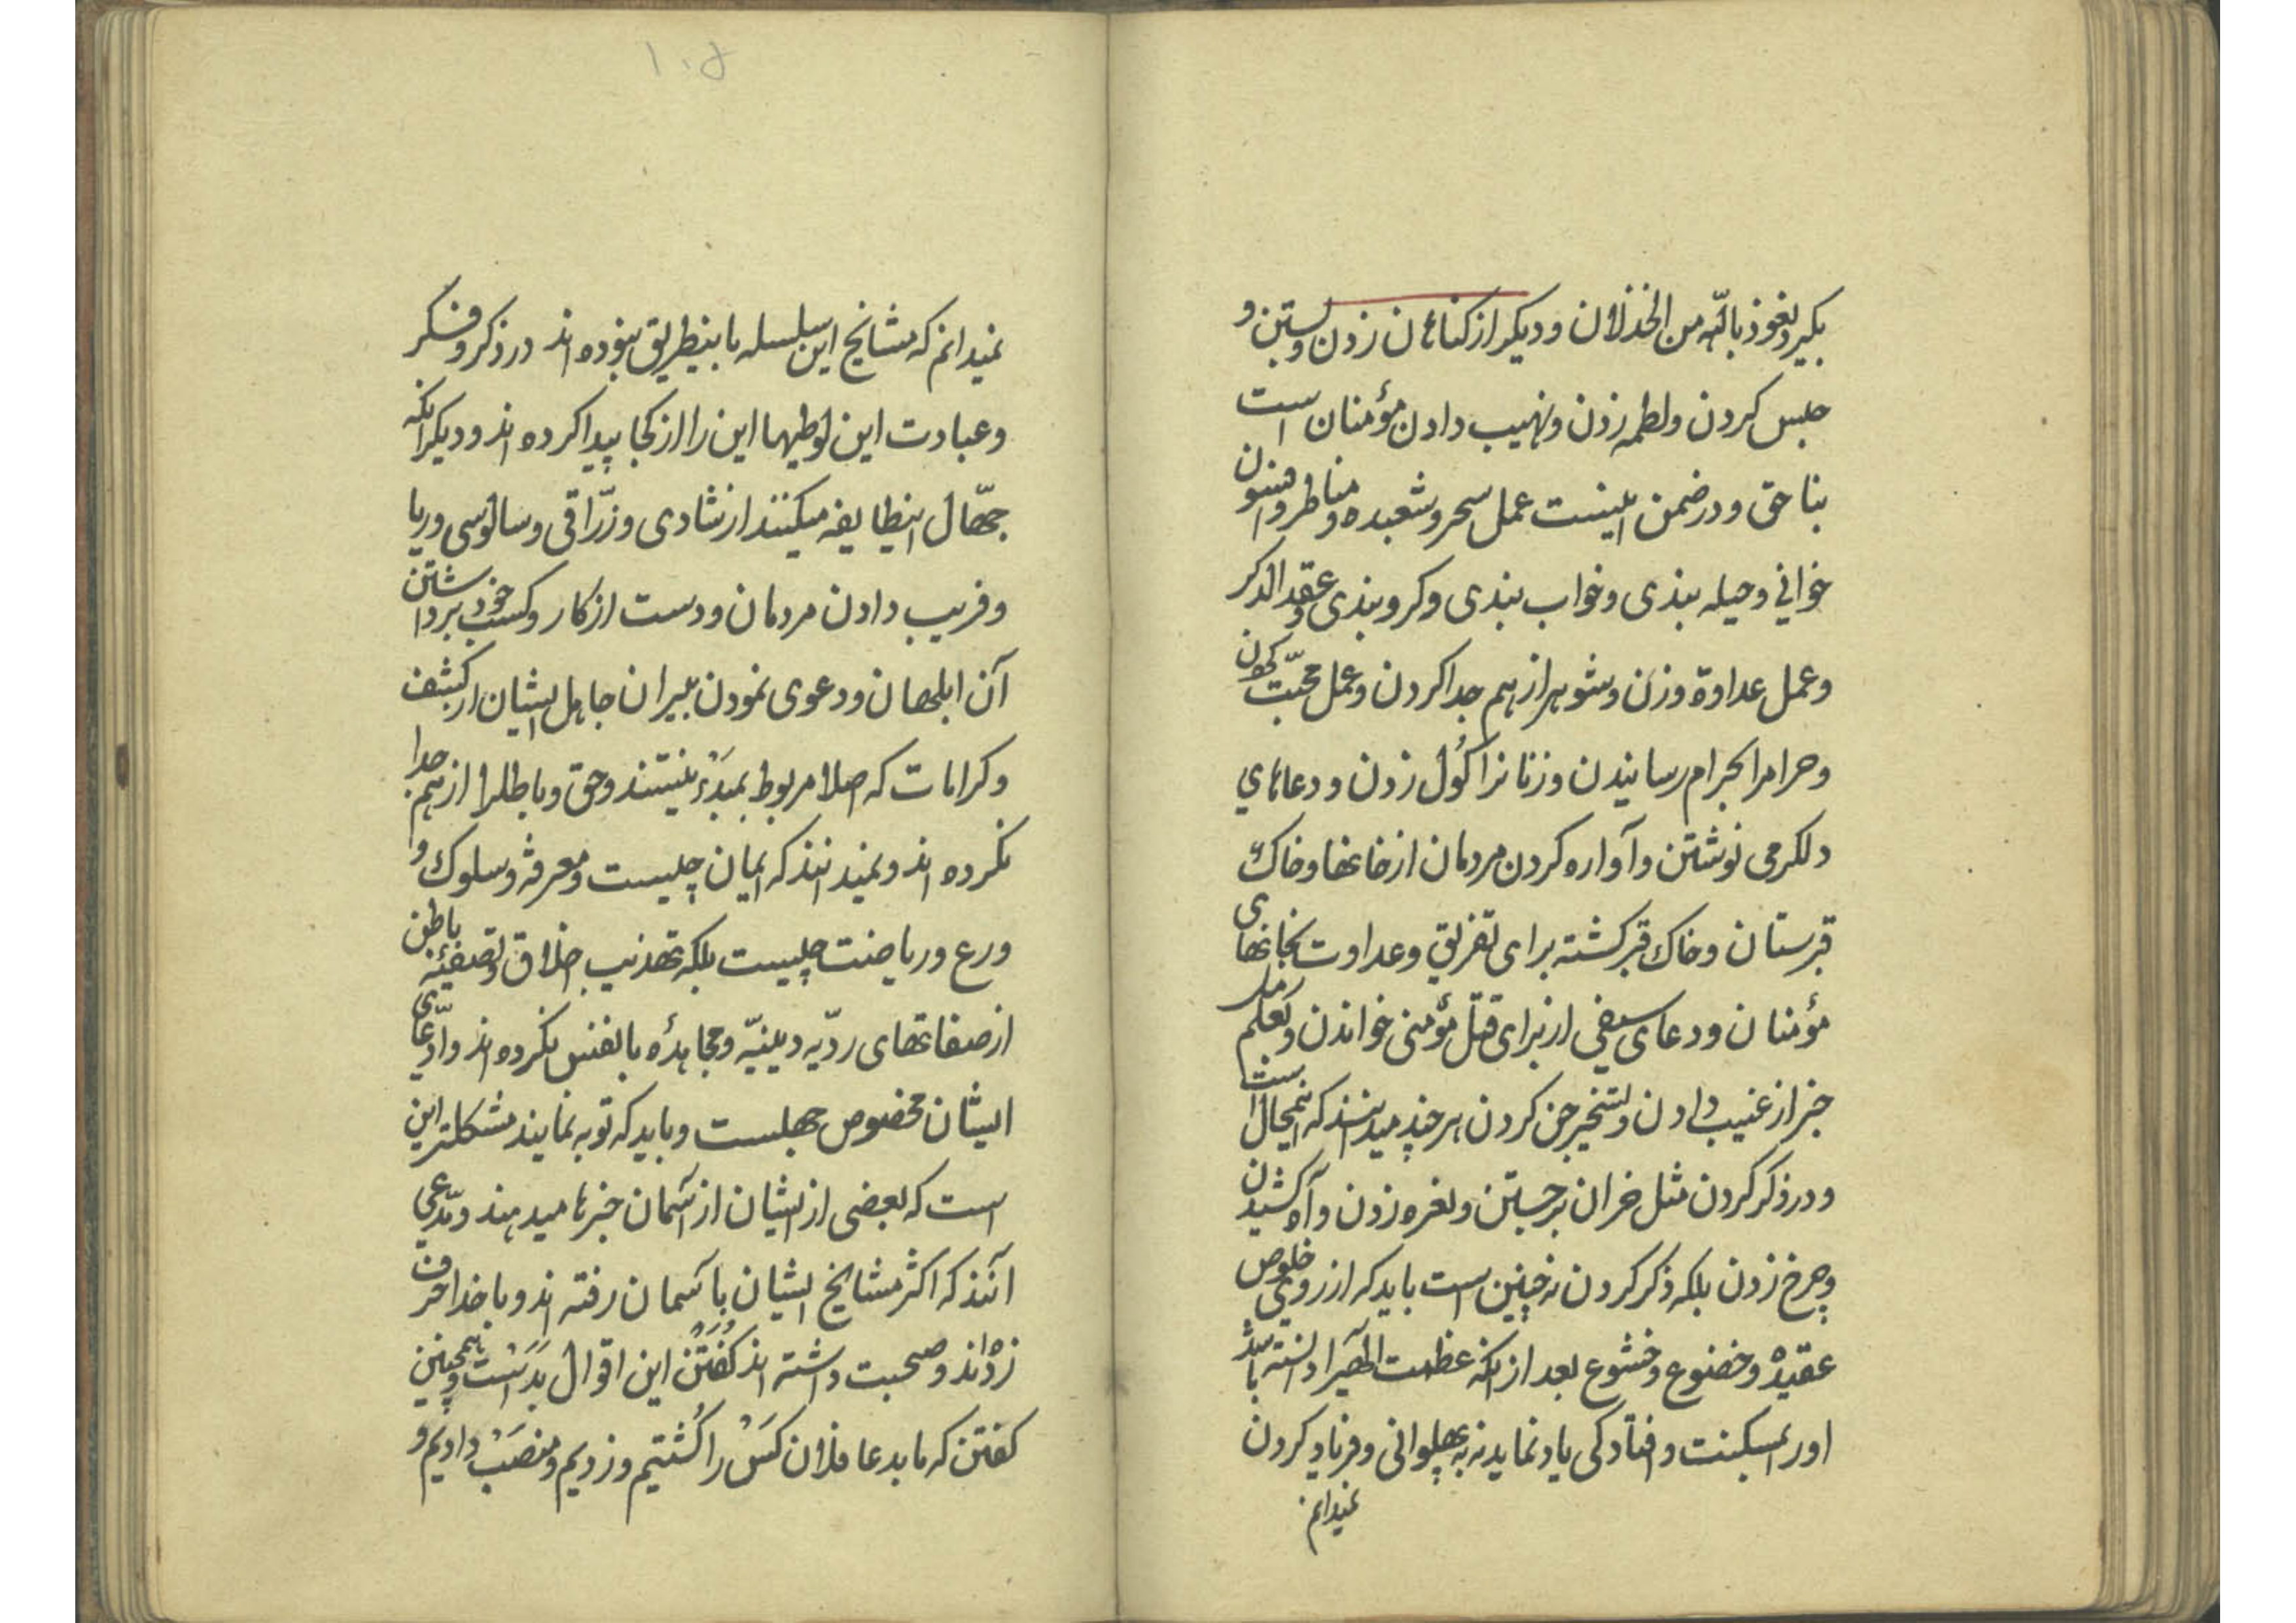 بکیرد نعوذ بالله من الخذلان و دیکر از کناهان زدن و بستن و
حبس کردن و لطمه زدن و نهیب دادن مؤمنان است
بناحق و در ضمن اینست عمل سحر و شعبده و مناطر و افسون
خوانی و حیله بندی و خواب بندی و کرو بندی و عقد الذکر
و عمل عداوة و زن و شوهر از هم جدا کردن و عمل محبّت کردن
و حرامرا بحرام رسانیدن و زنانرا کُول زدن و دعاهای
دلکرمی نوشتن و آواره کردن مردمان از خانها و خاک
قبرستان و خاک قبر کشته برای تفریق و عداوت بخانهای
مؤمنان و دعای سیفی از برای قتل مؤمنی خواندن و بعلم رمل
خبر از غیب دادن و تسخیر جن کردن هر چند میدانند که اینمحال است
و در ذکر کردن مثل خران برجستن و نعره زدن و آه کشیدن
و چرخ زدن بلکه ذکر کردن نه چنین است باید که از روی خلوص
عقیده و خضوع و خشوع بعد از انکه عظمت الهیرا دانسته باشد
اورا بمسکینت و افتادکی یاد نماید نه به پهلوانی و فریاد کردن
نمیدانم
۱۰۵
نمیدانم که مشایخ این سلسله باینطریق نبوده اند در ذکر و فکر
و عبادت این لوطیها این را از کجا پیدا کرده اند و دیکر انکه
جهّال اینطایفه میکنند از شادی و زرّاقی و سالوسی و ریا
و فریب دادن مردمان و دست از کار و کسب خود برداشتن
آن ابلهان و دعوی نمودن پیران جاهل ایشان از کشف
و کرامات که اصلا مربوط بمبدَء نیستند و حق و باطلرا از هم جدا
نکرده اند و نمیدانند که ایمان چیست و معرفة و سلوک و
ورع و ریاضت چیست بلکه تهذیب اخلاق و تصفیئه باطن
از صفاتهای ردّیه دینیّه و مجاهده با نفس نکرده اند و ادّعای
ایشان مخصوص جهلست و باید که توبه نمایند مشکلتر این
است که بعضی از ایشان از آسمان خبرها میدهند و مدّعی
آنند که اکثر مشایخ ایشان بآسمان رفته اند و با خدا حرف
زده اند و صحبت داشته اند کُفتَن این اقوال بدَسْت و همچنین
کفتن که ما بدعا فلان کسْ را کُشتیم و زدیم و منصَبْ دادیم و